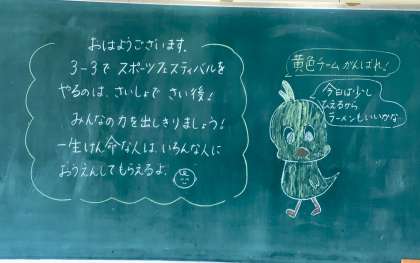 おはようございます。
3-3で スポーツフェスティバルを
やるのは、さいしょで さい後!
みんなの力を出しきりましょう!
一生けん命な人は、いろんな人に
おうえんしてもらえるよ。
黄色チームがんばれ!
今日は少し
ひえるから
ラーメンもいいかな